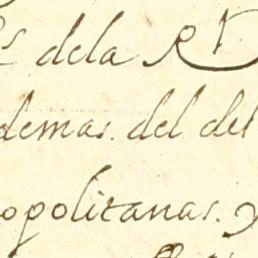 dela Rl
demas. del del
opolitanas. y